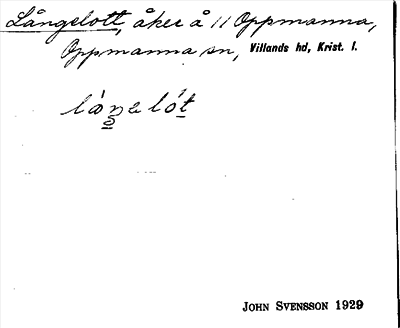 Långelott, åker å 11 Oppmanna,
Oppmanna sn, Villands hd, Krist. l.
JOHN SVENSSON 1929